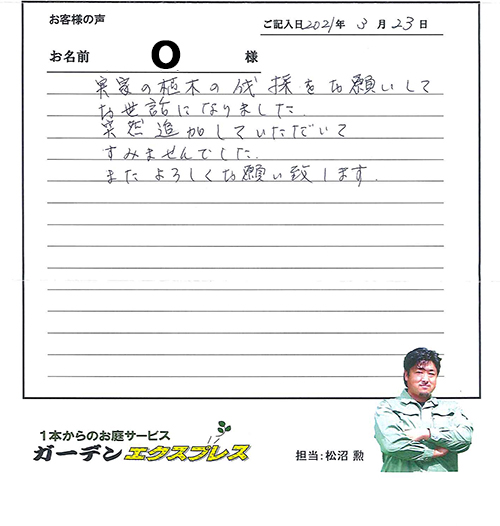 お客様の声
ご記入日2021年 3月23日
お名前 O 様
実家の植木の伐採をお願いして
お世話になりました.
突然追加していただいて
すみませんでした.
またよろしくお願い致します.
1本からのお庭サービス
ガーデンエクスプレス
担当:松沼 勲